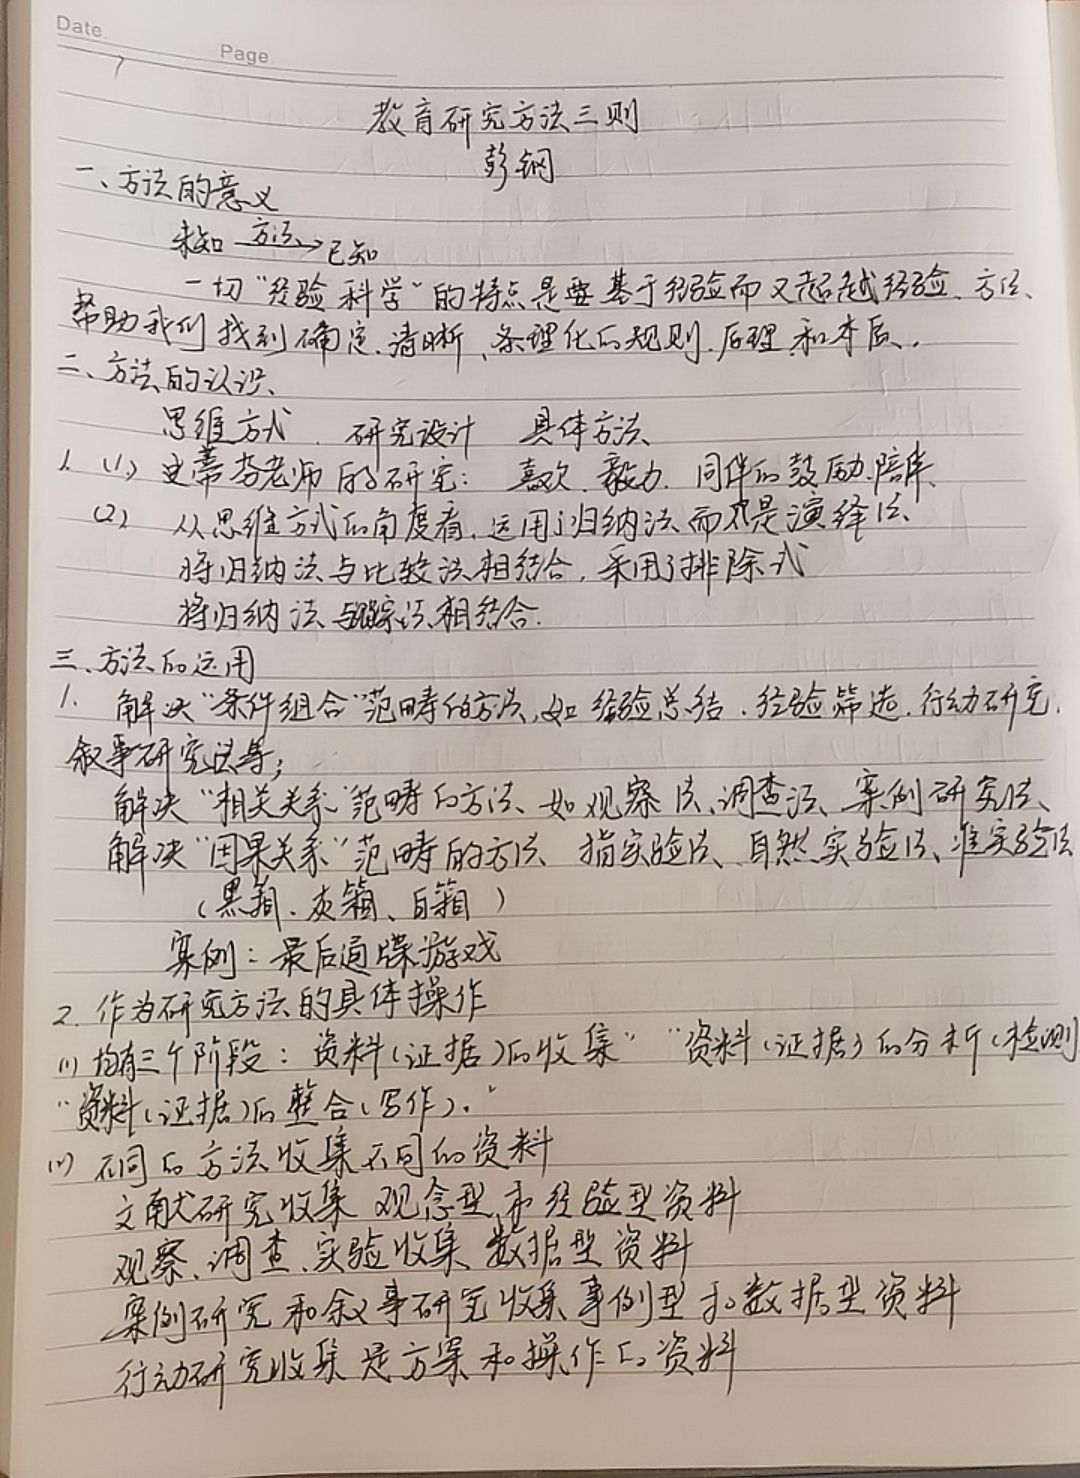 Date
Page
教育研究方法三则
彭钢
一、方法的意义
未知 方法→ 已知
一切“经验科学”的特点是要基于经验而又超越经验、方法、
帮助我们找到确定、清晰、条理化的规则、原理和本质。
二、方法的认识、
思维方式、研究设计 具体方法、
1. (1) 史蒂芬老师的研究: 喜欢、毅力、同伴的鼓励、陪伴、
(2) 从思维方式的角度看,运用了归纳法而不是演绎法、
将归纳法与比较法相结合,采用了排除式
将归纳法与跟踪法相结合.
三、方法的运用
1. 解决“条件组合”范畴的方法,如经验总结、经验筛选、行动研究、
叙事研究法等;
解决“相关关系”范畴的方法、如观察法、调查法、案例研究法、
解决“因果关系”范畴的方法、指实验法、自然实验法、准实验法
(黑箱、灰箱、白箱)
案例:最后通牒游戏
2. 作为研究方法的具体操作
(1) 均有三个阶段: 资料(证据)的收集” “资料(证据)的分析(检测
“资料(证据)的整合(写作)。”
(2) 不同的方法收集不同的资料
文献研究收集观念型和经验型资料
观察、调查、实验收集数据型资料
案例研究和叙事研究收集事例型和数据型资料
行动研究收集是方案和操作的资料